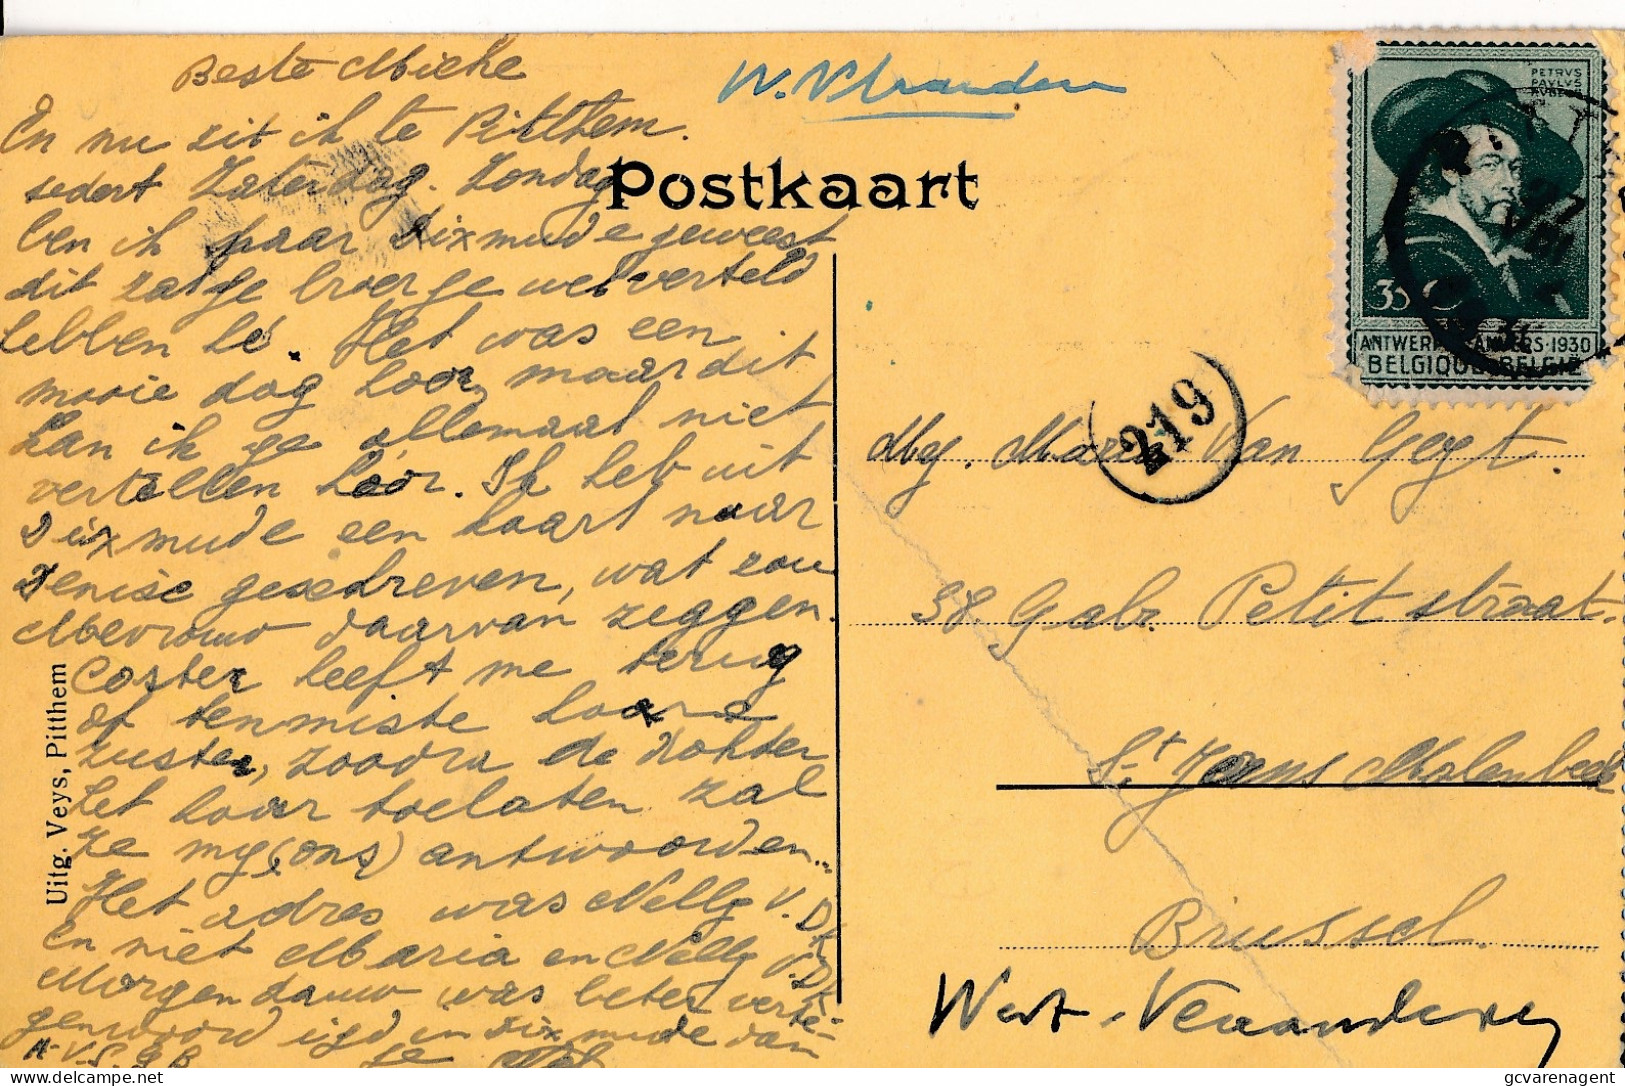 Beste Mieke
En nu zit ik te Pitthem.
sedert Zaterdag. Zondag
ben ik naar Dixmude geweest
dit zal ge broer ge wel verteld
hebben hé. Het was een
mooie dag hoor, maar dit
kan ik ge allemaal niet
vertellen hoor. Ik heb uit
Dixmude een kaart naar
Denise geschreven, wat zou
Mevrouw daarvan zeggen.
Coster heeft me terug
of tenmiste haare
zuster, zoodra de Dokter
het haar toelaten zal
Ze my (ons) antwoorden..
Het adres was Nelly V.D.K
En niet Maria en Nelly V.D.K
Morgen was beter
in Dixmude dan
W. Vlaanderen
Postkaart
PETRVS
PAVLVS
RVBENS
35
ANTWERPEN ANVERS·1930
BELGIQUE BELGIË
219
Mej. Maria Van Geyt.
38 Gabr. Petit straat.
St Jans Molenbeek
Brussel.
West-Vlaanderen
Uitg. Veys, Pitthem
gcvarenagent